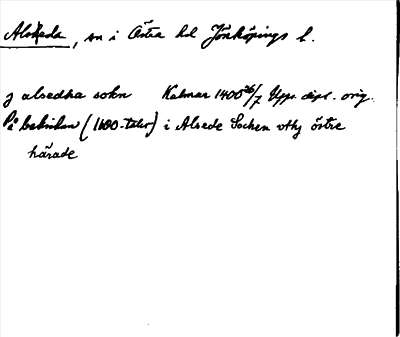 Alseda, sn i Östra hd Jönköpings l.
j alsedha sokn Kalmar 1400 26/7 Upps. dipl. orig.
På baksidan (1600-talet) i Alsede Sochen vthj östre
härade